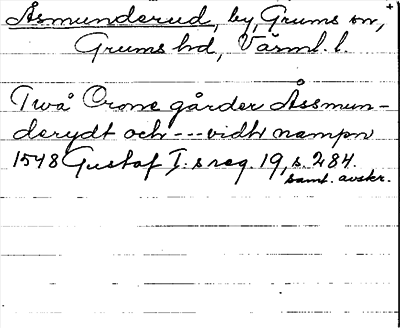 Åsmunderud, by, Grums sn,
Grums hd, Värml. l.
Twå Crone gårder Åssmun-
derydt och --- vidh nampn
1548 Gustaf I:s reg. 19, s. 284.
samt. avskr.